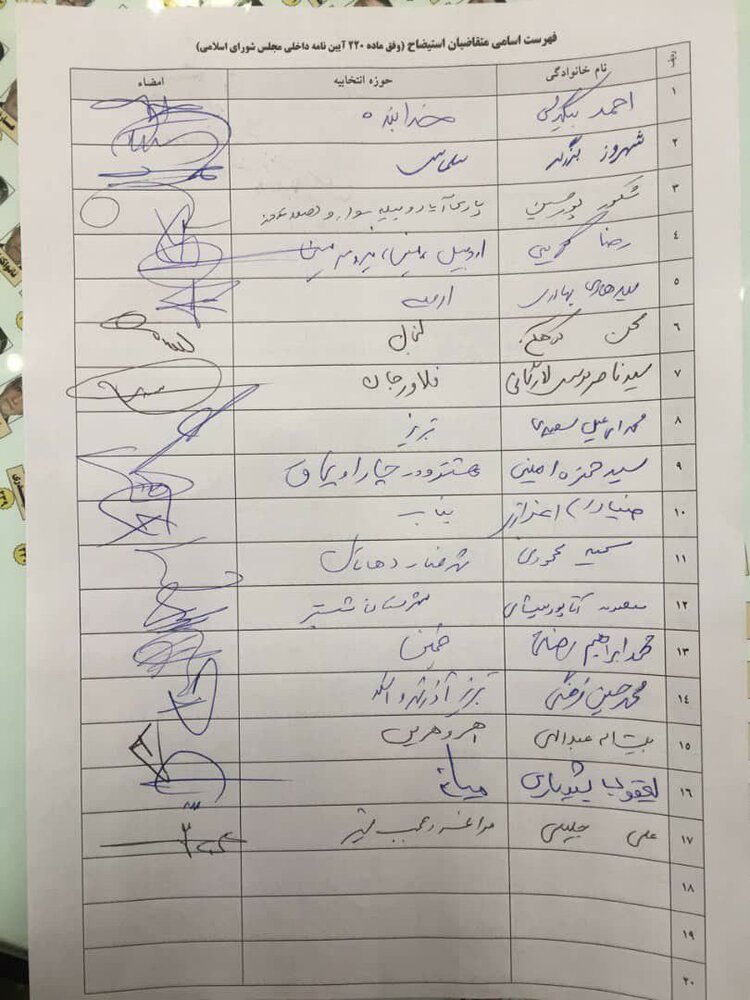 فهرست اسامی متقاضیان استیضاح (وفق ماده ۲۲۰ آیین نامه داخلی مجلس شورای اسلامی)
ردیف نام خانوادگی حوزه انتخابیه امضاء
۱ احمد بیگدلی خدابنده
۲ شهروز برزگر سلماس
۳ شکور پورحسین پارس آباد و بیله سوار و
۴ رضا کریمی اردبیل نمین، نیر و سرعین
۵ سید هادی بهادری ارومیه
۶ محسن
۷ سید ناصر موسوی لارگانی فلاورجان
۸ محمد اسماعیل سعیدی تبریز
۹ سید حمزه امینی هشترود و چاراویماق
۱۰ ضیاء اعزازی بناب
۱۱ سمیه محمودی شهرضا و دهاقان
۱۲ معصومه آقاپور علیشاهی شهرستان شبستر
۱۳ محمد ابراهیم رضایی خمین
۱۴ محمد حسین فرهنگی تبریز آذرشهر و اسکو
۱۵ بیت اله عبدالهی اهر و هریس
۱۶ یعقوب شیویاری میانه
۱۷ علی جلیلی مراغه و عجب شیر
۱۸
۱۹
۲۰